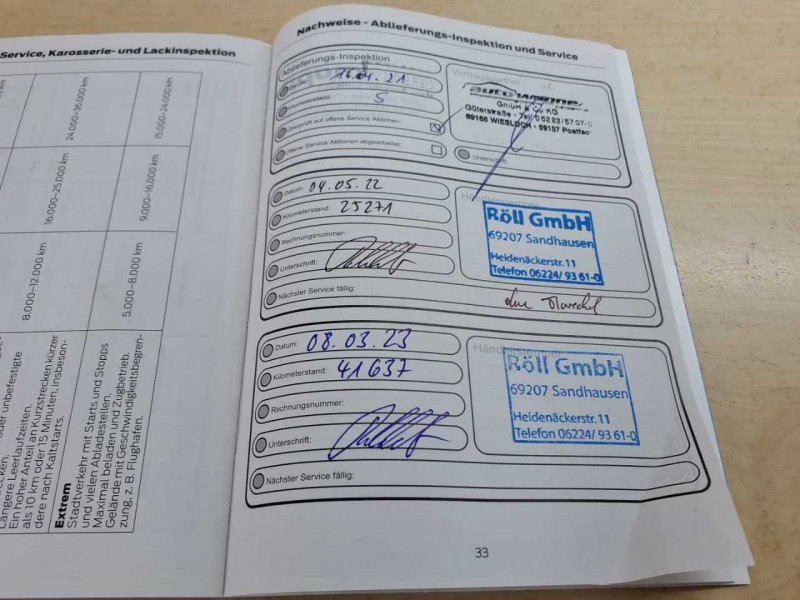 Service, Karosserie- und Lackinspektion
24.000–36.000 km
15.000–24.000 km
16.000–25.000 km
9.000–16.000 km
8.000–12.000 km
5.000–8.000 km
oder unbefestigte
Längere Leerlaufzeiten.
Ein hoher Anteil an Kurzstrecken kürzer
als 10 km oder 15 Minuten, insbeson-
dere nach Kaltstarts.
Extrem
Stadtverkehr mit Starts und Stopps
und vielen Abladestellen.
Maximal beladen und Zugbetrieb.
Gelände mit Geschwindigkeitsbegren-
zung, z. B. Flughafen.
Nachweise - Ablieferungs-Inspektion und Service
Ablieferungs-Inspektion
16.04.21
Kilometerstand: 5
Überprüft auf offene Service Aktionen:
Offene Service Aktionen abgearbeitet:
Vertragspartner
GmbH & Co KG
Güterstraße · Tel 06222/5707-0
69168 WIESLOCH · 69157 Postfach
Unterschrift:
Datum: 04.05.22
Kilometerstand: 25271
Rechnungsnummer:
Unterschrift:
Nächster Service fällig:
Händlerstempel
Röll GmbH
69207 Sandhausen
Heidenäckerstr. 11
Telefon 06224/ 93 61-0
Datum: 08.03.23
Kilometerstand: 41637
Rechnungsnummer:
Unterschrift:
Nächster Service fällig:
Händlerstempel
Röll GmbH
69207 Sandhausen
Heidenäckerstr. 11
Telefon 06224/ 93 61-0
33